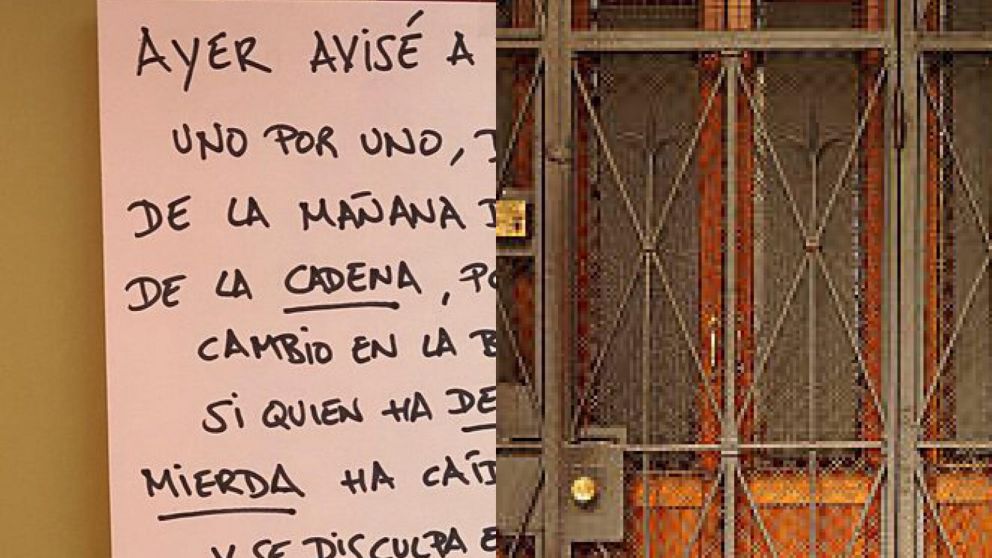 AYER AVISÉ A
UNO POR UNO,
DE LA MAÑANA
DE LA CADENA,
CAMBIO EN LA
SI QUIEN HA DE
MIERDA HA CAÍD
Y SE DISCULPA